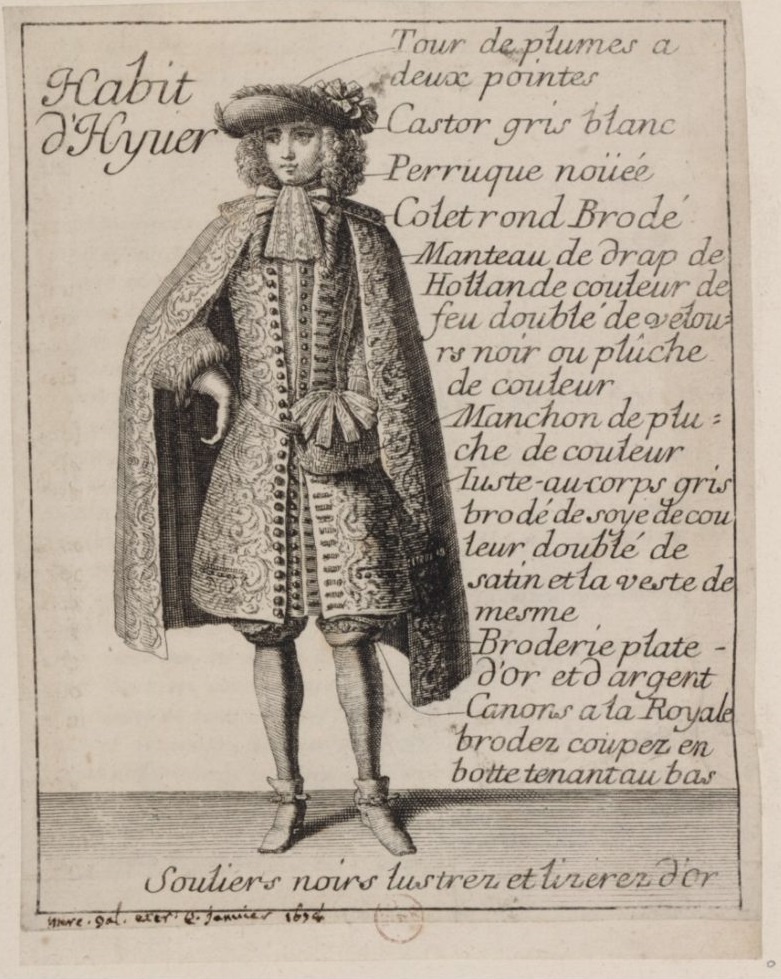 Habit
d'Hyuer
Tour de plumes a
deux pointes
Castor gris blanc
Perruque noüeé
Colet rond Brodé
Manteau de drap de
Hollande couleur de
feu double de velou=
rs noir ou plûche
de couleur
Manchon de plu=
che de couleur
Iuste-au-corps gris
brodé de soye de cou
leur doublé de
satin et la veste de
mesme
Broderie plate -
d'Or et d argent
Canons a la Royale
brodez coupez en
botte tenant au bas
Souliers noirs lustrez et lizerez d'Or
Merc. Gal. extr. Janvier 1678